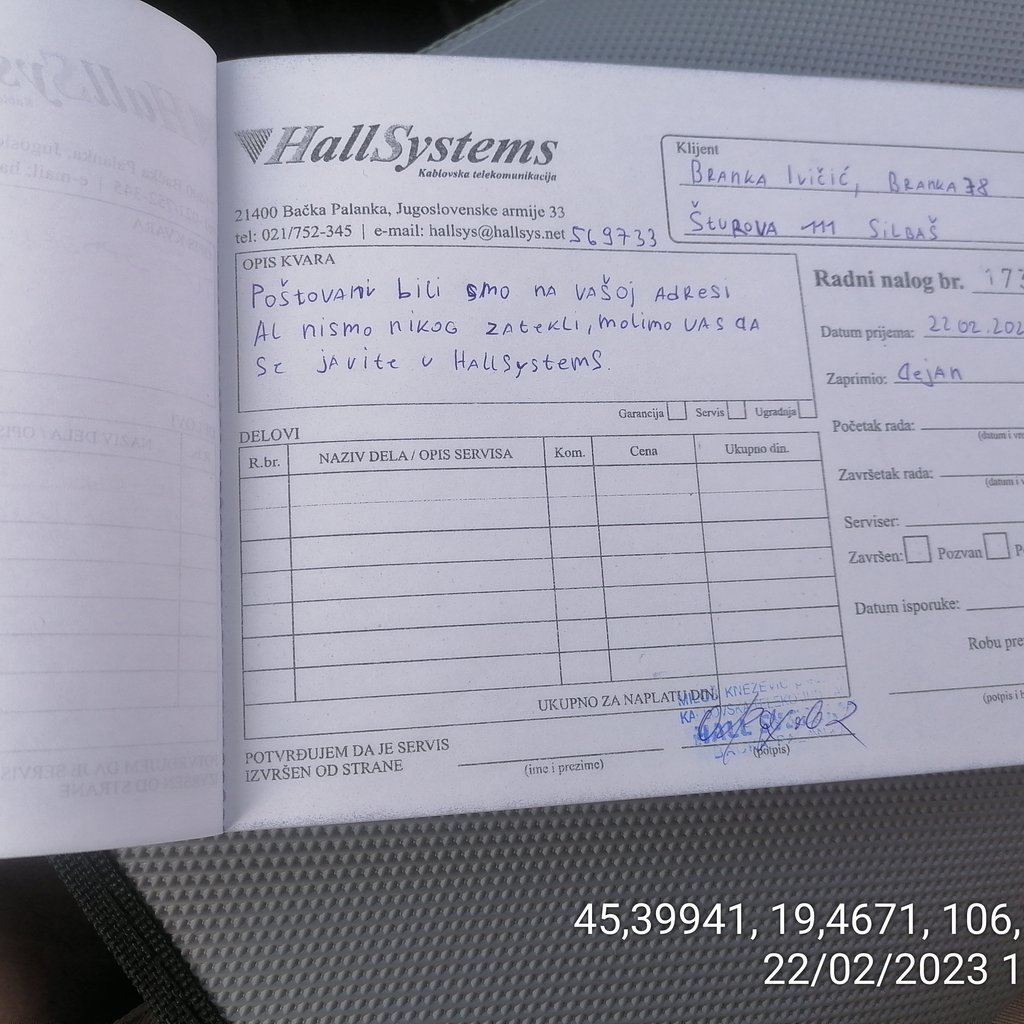 HallSystems
Kablovska telekomunikacija
21400 Bačka Palanka, Jugoslovenske armije 33
tel: 021/752-345 | e-mail: hallsys@hallsys.net 569733
Klijent
BRANKA IVIČIĆ, BRANKA 78
ŠTUROVA 111 SILBAŠ
OPIS KVARA
POŠTOVANI bILI SMO NA VAŠOJ ADRESI
AL NISMO NIKOG ZATEKLI, MOLIMO VAS DA
SE JAVITE U HALLSYSTEMS.
Garancija Servis Ugradnja
Radni nalog br. 173
Datum prijema: 22.02.202
Zaprimio: Dejan
Početak rada:
(datum i vr
Završetak rada:
(datum i v
Serviser:
Završen: Pozvan P
Datum isporuke:
Robu pre
(potpis i b
DELOVI
R.br. NAZIV DELA / OPIS SERVISA Kom. Cena Ukupno din.
UKUPNO ZA NAPLATU DIN.
KNEZEVIC
POTVRĐUJEM DA JE SERVIS
IZVRŠEN OD STRANE
(ime i prezime)
(potpis)
45,39941, 19,4671, 106,
22/02/2023 1